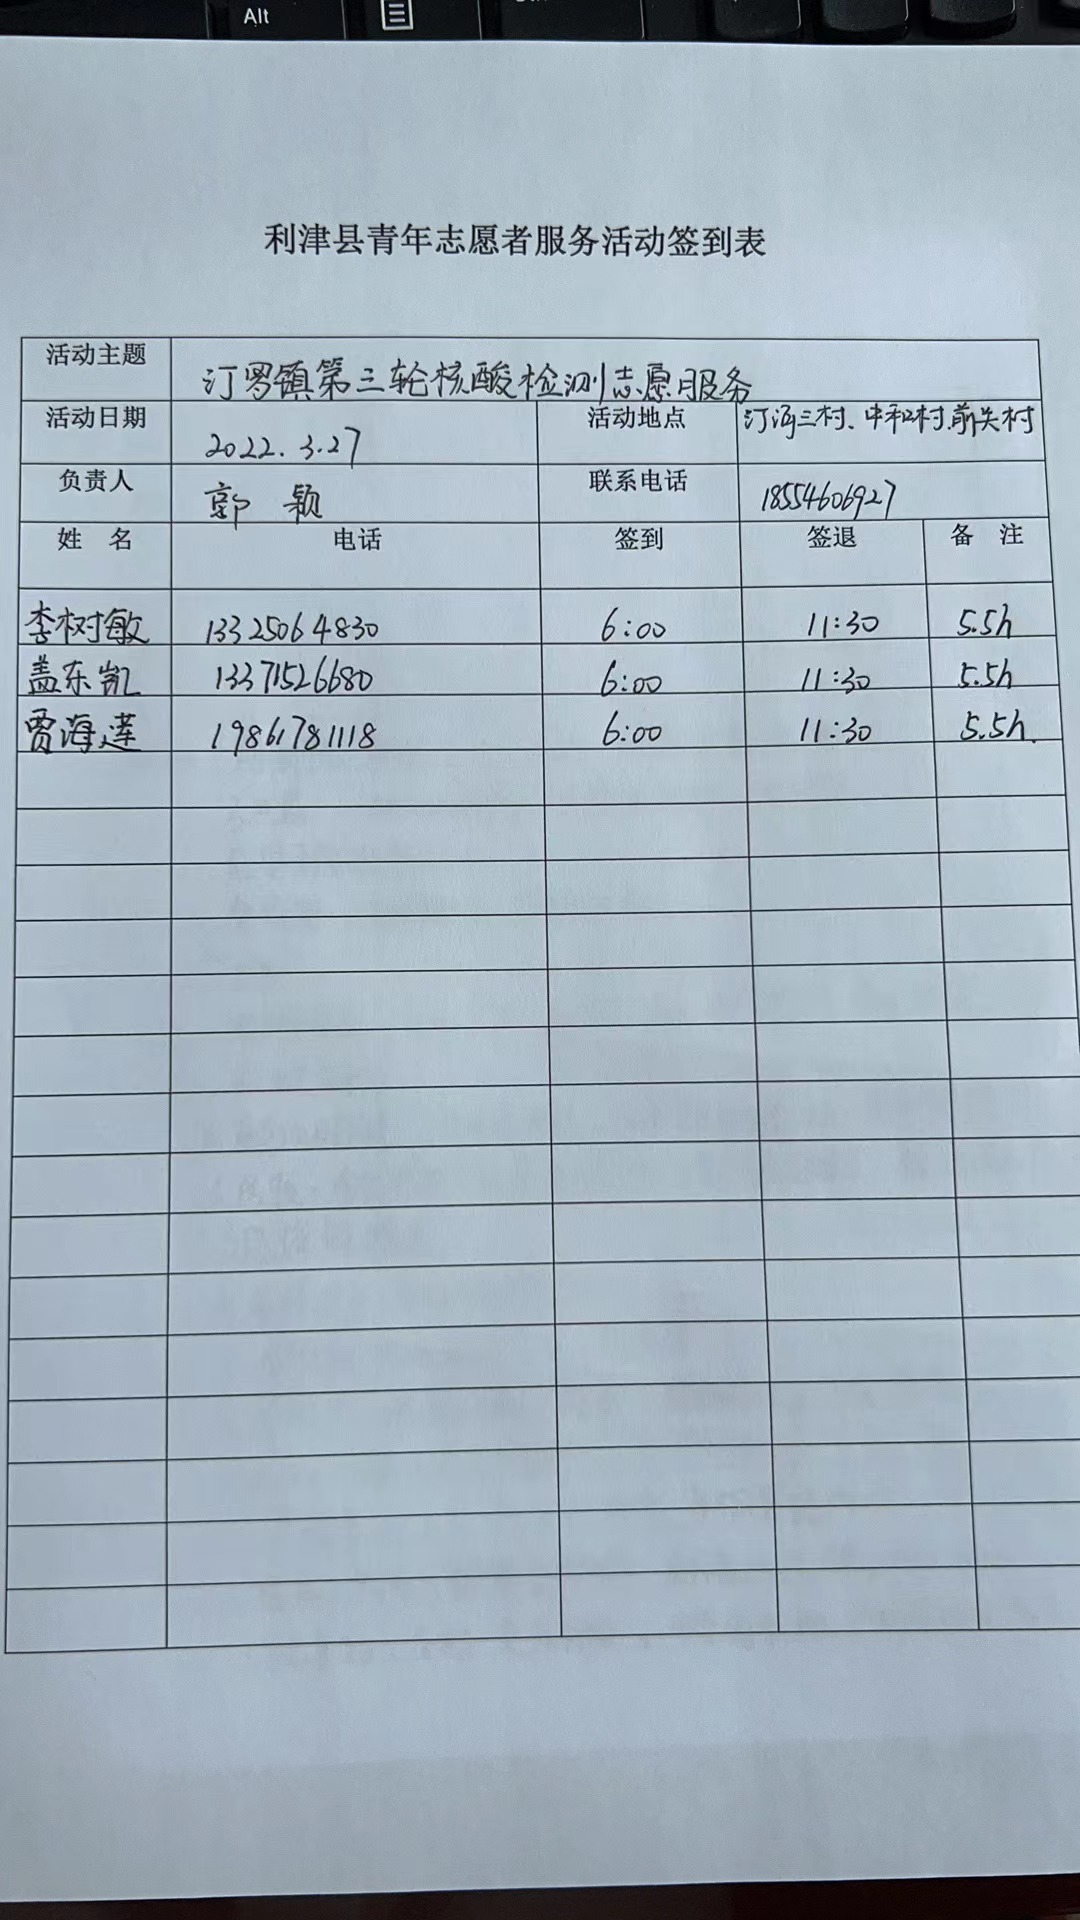 Alt
利津县青年志愿者服务活动签到表
活动主题 汀罗镇第三轮核酸检测志愿服务
活动日期 2022.3.27 活动地点 汀河三村、中和村、前关村
负责人 郭颖 联系电话 18554606927
姓 名 电话 签到 签退 备 注
李树敏 13325064830 6:00 11:30 5.5h
盖东凯 13371526680 6:00 11:30 5.5h
贾海莲 19861781118 6:00 11:30 5.5h.